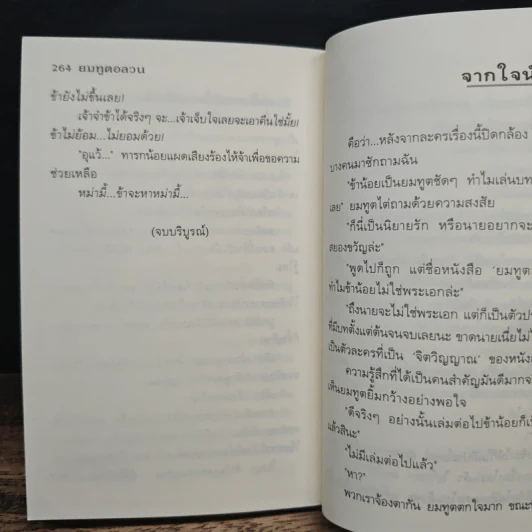 264 ยมทูตอลวน
ข้ายังไม่ขึ้นเลย!
เจ้าจำข้าได้จริงๆ จะ...เจ้าเจ็บใจเลยจะเอาคืนใช่มั้ย!
ข้าไม่ยอม...ไม่ยอมด้วย!
"อุแว้..." ทารกน้อยแผดเสียงร้องไห้จ้าเพื่อขอความ
ช่วยเหลือ
หม่ามี้...ข้าจะหาหม่ามี้...
(จบบริบูรณ์)
จากใจนั
คือว่า...หลังจากละครเรื่องนี้ปิดกล้อง
บางคนมาซักถามฉัน
"ข้าน้อยเป็นยมทูตชัดๆ ทำไมเล่นบท
เลย" ยมทูตไต่ถามด้วยความสงสัย
"ก็นี่เป็นนิยายรัก หรือนายอยากจะ
สยองขวัญล่ะ"
"พูดไปก็ถูก แต่ชื่อหนังสือ 'ยมทูต
ทำไมข้าน้อยไม่ใช่พระเอกล่ะ"
"ถึงนายจะไม่ใช่พระเอก แต่ก็เป็นตัวป
ที่มีบทตั้งแต่ต้นจนจบเลยนะ ขาดนายเนี่ยไม่
เป็นตัวละครที่เป็น 'จิตวิญญาณ' ของหนัง
ความรู้สึกที่ได้เป็นคนสำคัญมันดีมาก
เห็นยมทูตยิ้มกว้างอย่างพอใจ
"ดีจริงๆ อย่างนั้นเล่มต่อไปข้าน้อยก็เ
แล้วสินะ"
"ไม่มีเล่มต่อไปแล้ว"
"หา?"
พวกเราจ้องตากัน ยมทูตตกใจมาก ขณะ